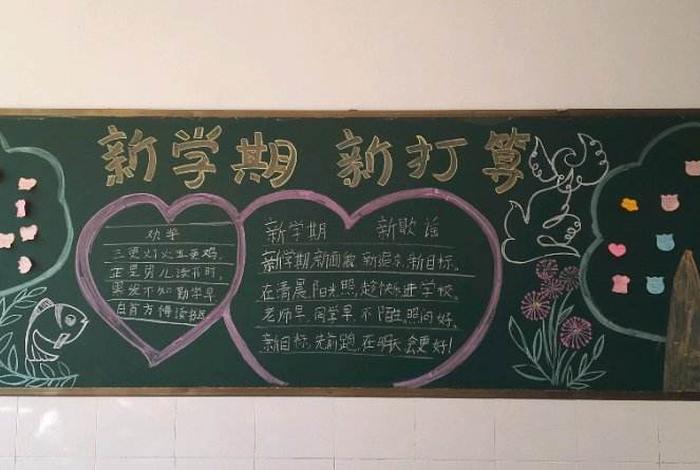 新学期 新打算
劝学
三更灯火五更鸡,
正是男儿读书时。
黑发不知勤学早
白首方悔读书迟
新学期 新歌谣
新学期,新面貌,新起点,新目标。
在清晨,阳光照,快进学校。
老师早,同学早,不陌生,照问好。
新目标,先前跑,在明天会更好!